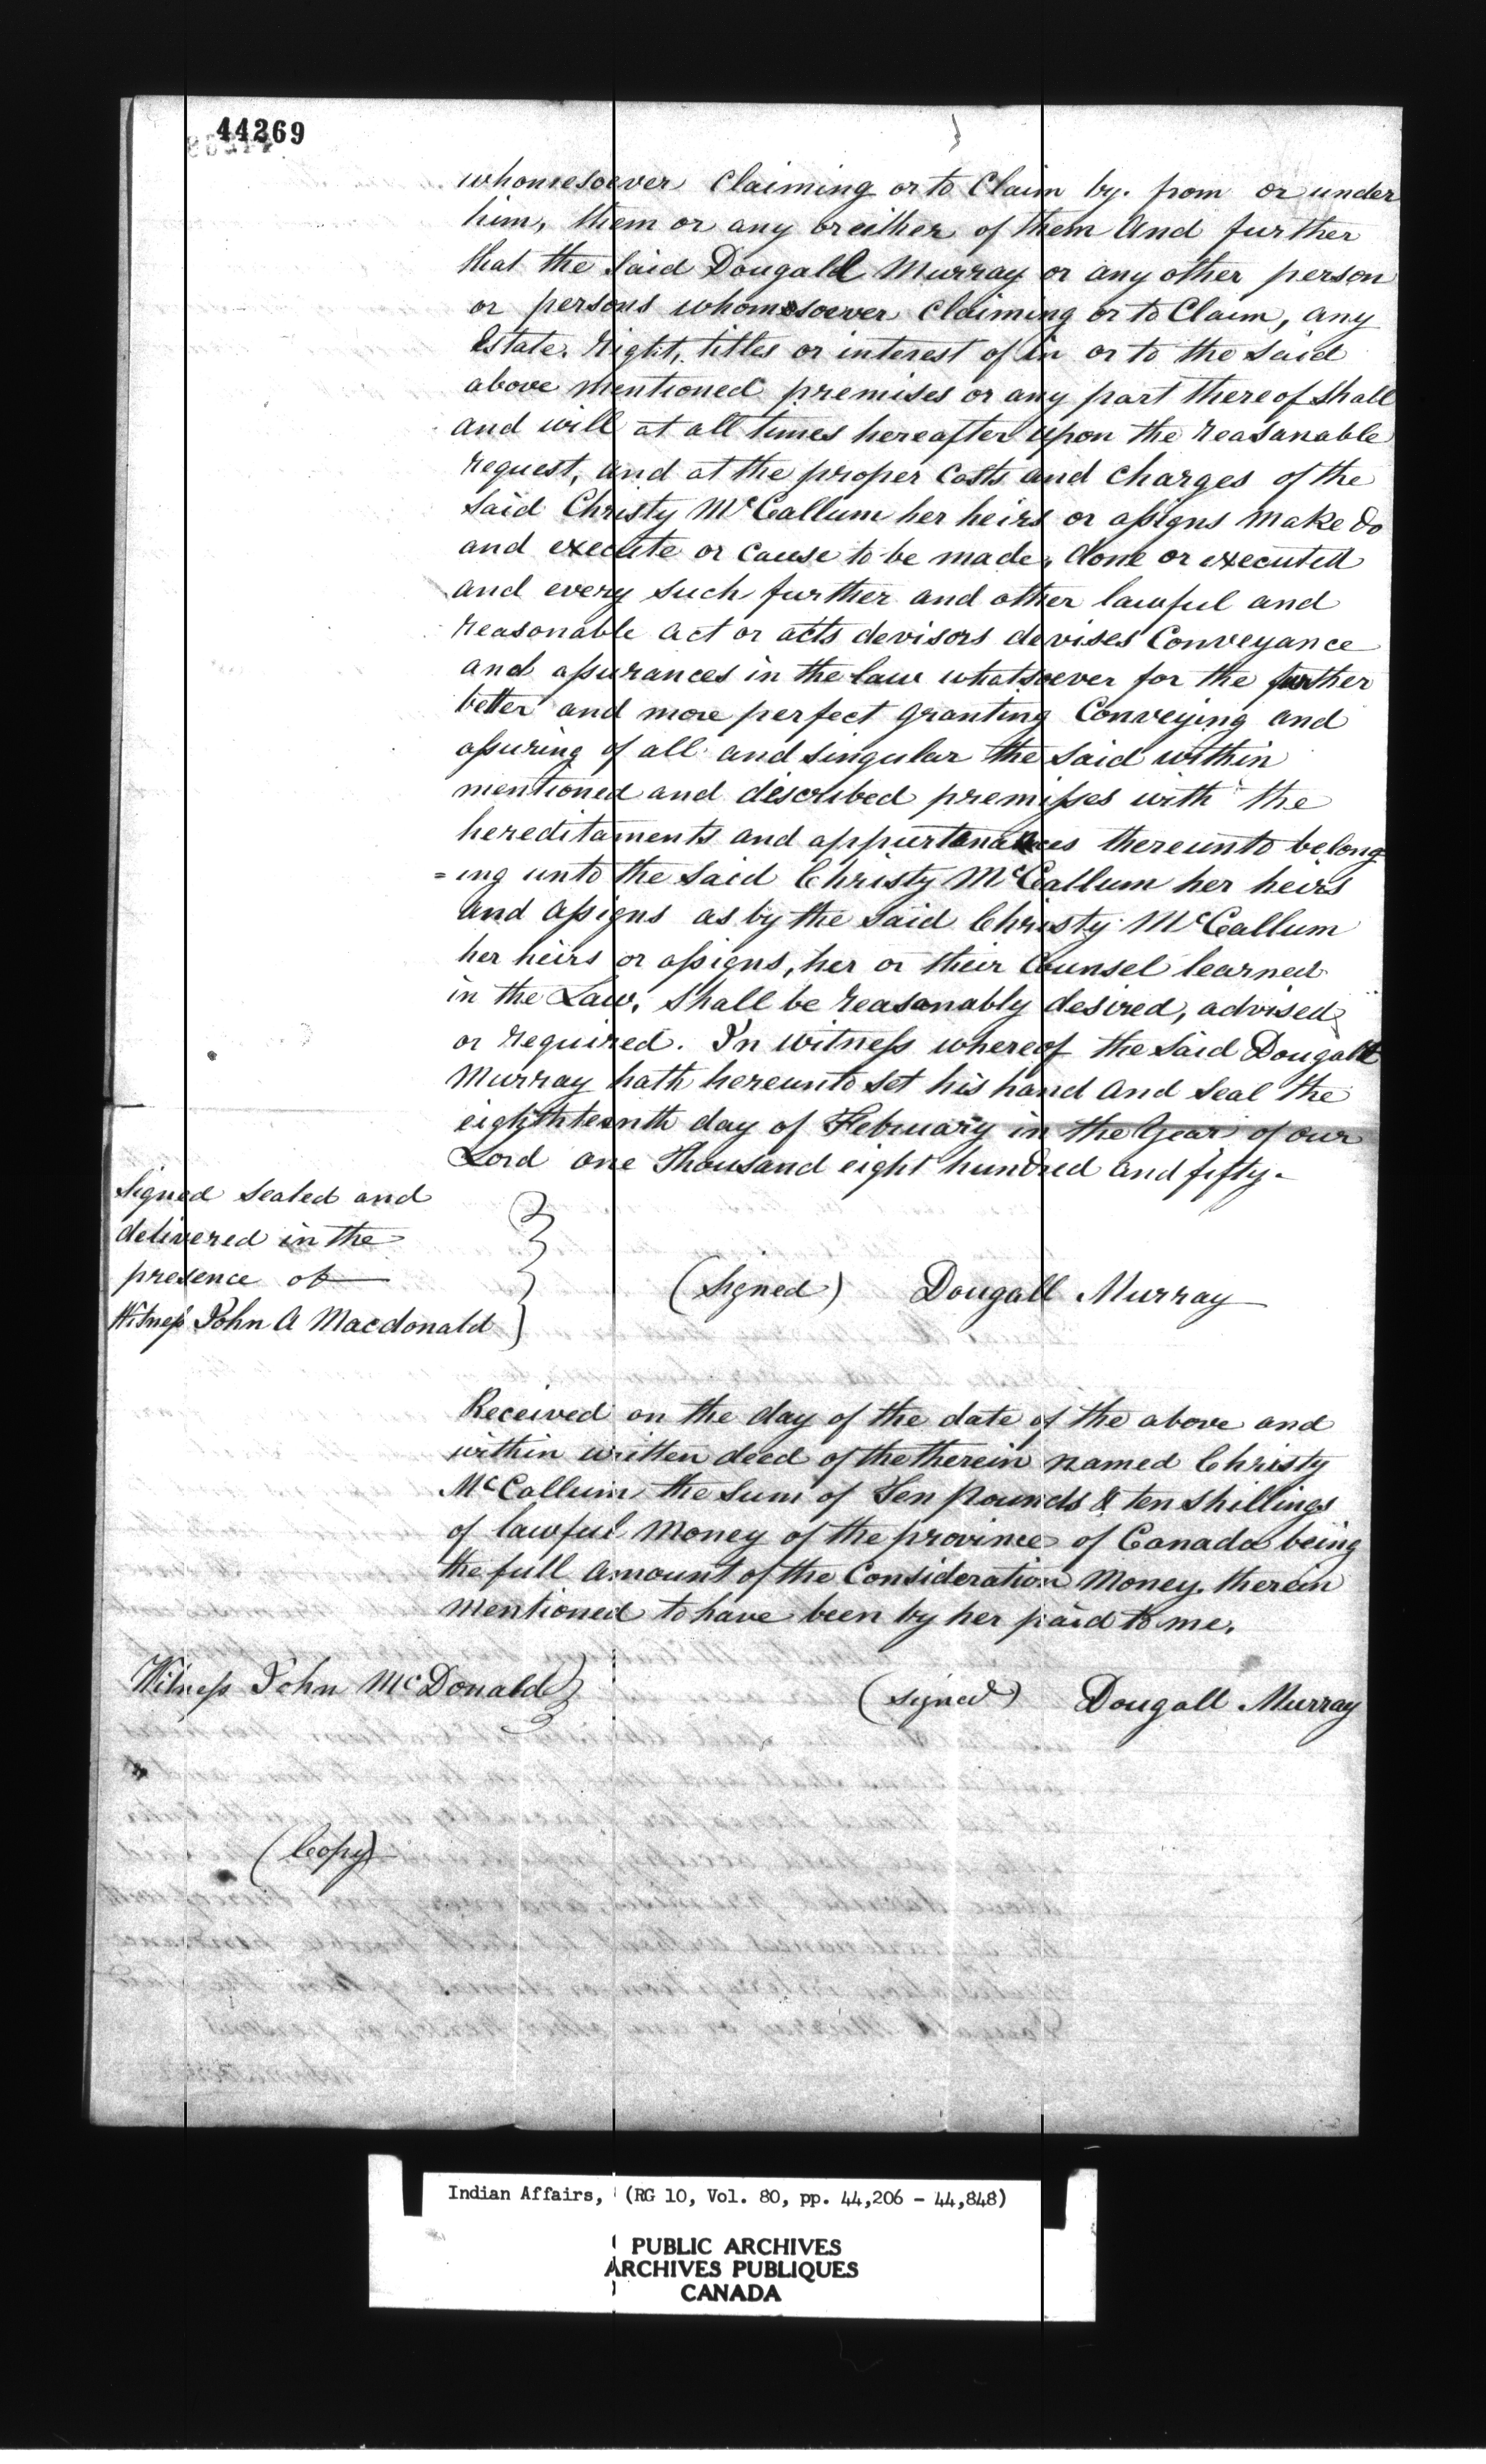 44269
whomesoever claiming or to Claim by. from or under
him, them or any or either of them And further
that the Said Dougall Murray or any other person
or persons whomsoever claiming or to Claim, any
Estate. Right, titles or interest of in or to the Said
above mentioned premises or any part thereof shall
and will at all times hereafter upon the reasanable
request, and at the proper Costs and Charges of the
Said Christy McCallum her heirs or assigns make do
and execute or cause to be made, done or executed
and every such further and other lawful and
reasonable act or acts devisors devises Conveyance
and assurances in the law whatsoever for the further
better and more perfect granting Conveying and
assuring of all and singular the said within
mentioned and described premisses with the
hereditaments and appurtenances thereunto belong
=ing unto the Said Christy McCallum her heirs
and Assigns as by the Said Christy McCallum
her heirs or assigns, her or their Counsel learned
in the Law, Shall be reasonably desired, advised
or required. In witness whereof the Said Dougall
Murray hath hereunto set his hand and seal the
eighthteenth day of February in the Year of our
Lord one Thousand eight hundred and fifty.
Signed sealed and
delivered in the
presence of
Witness John A Macdonald
(signed) Dougall Murray
Received on the day of the date of the above and
within written deed of the therein named Christy
McCallum the Sum of Ten pounds & ten shillings
of lawful Money of the province of Canada being
the full Amount of the Consideration Money therein
mentioned to have been by her paid to me.
Witness John McDonald
(signed) Dougall Murray
(Copy)
Indian Affairs, (RG 10, Vol. 80, pp. 44,206 - 44,848)
PUBLIC ARCHIVES
ARCHIVES PUBLIQUES
CANADA